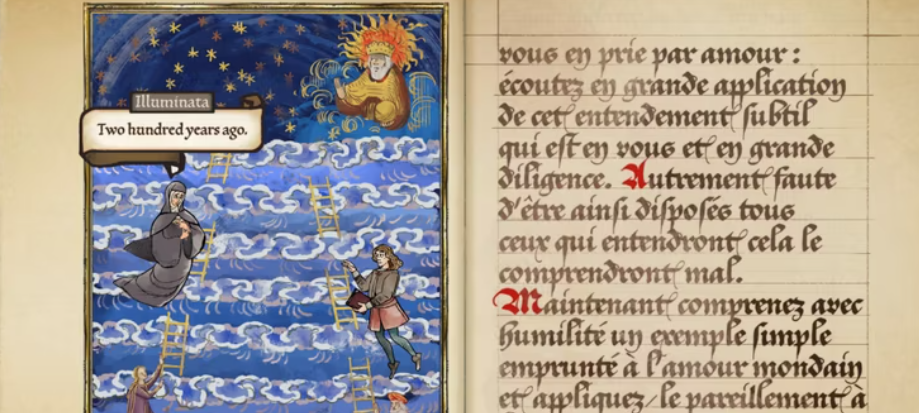 Illuminata
Two hundred years ago.
vous en prie par amour :
écoutez en grande application
de cet entendement subtil
qui est en vous et en grande
diligence. Autrement faute
d'être ainsi disposés tous
ceux qui entendront cela le
comprendront mal.
Maintenant comprenez avec
humilité un exemple simple
emprunté à l'amour mondain
et appliquez-le pareillement à